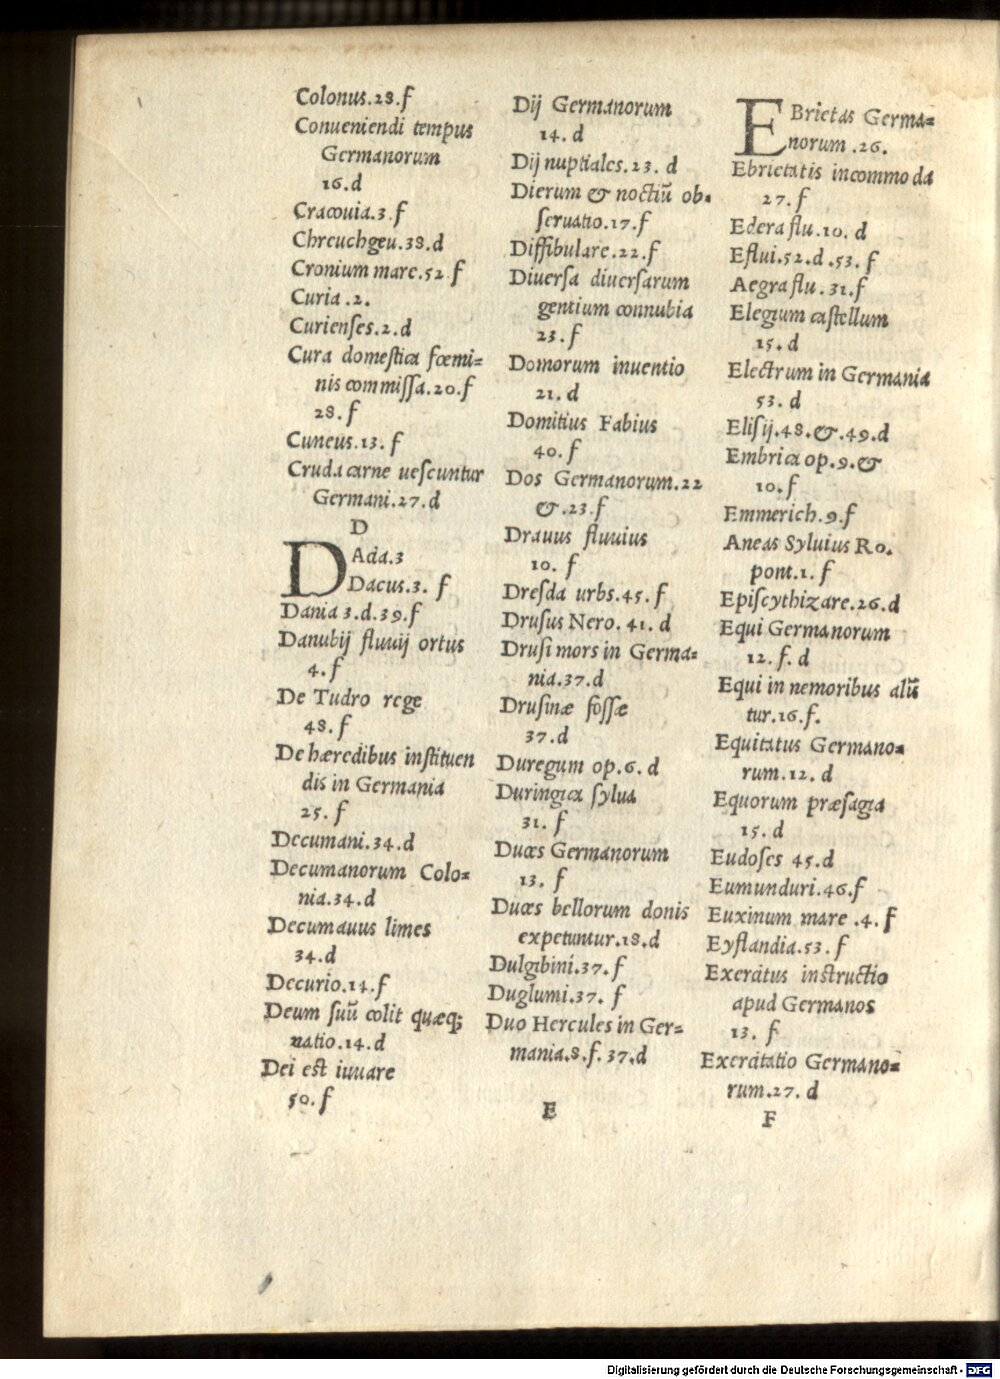 Colonus.28.f
Conueniendi tempus
Germanorum
16.d
Cracouia.3.f
Chreuchgeu.38.d
Cronium mare.52 f
Curia.2.
Curienses.2.d
Cura domestica fœmi=
nis commissa.20.f
28.f
Cuneus.13.f
Cruda carne uescuntur
Germani.27.d
D
DAda.3
Dacus.3. f
Dania 3.d.39.f
Danubij fluuij ortus
4.f
De Tudro rege
48.f
De hæredibus instituen
dis in Germania
25.f
Decumani.34.d
Decumanorum Colo=
nia.34.d
Decumauus limes
34.d
Decurio.14.f
Deum suũ colit quæq;
natio.14.d
Dei est iuuare
50.f
Dij Germanorum
14.d
Dij nuptiales.23.d
Dierum & noctiũ ob=
seruatio.17.f
Diffibulare.22.f
Diuersa diuersarum
gentium connubia
23.f
Domorum inuentio
21.d
Domitius Fabius
40.f
Dos Germanorum.22
&.23.f
Drauus fluuius
10.f
Dresda urbs.45.f
Drusus Nero.41.d
Drusi mors in Germa=
nia.37.d
Drusinæ fossæ
37.d
Duregum op.6.d
Duringica sylua
31.f
Duces Germanorum
13.f
Duces bellorum donis
expetuntur.18.d
Dulgibini.37.f
Duglumi.37.f
Duo Hercules in Ger=
mania.8.f.37.d
E
EBrietas Germa=
norum.26.
Ebrietatis incommoda
27.f
Edera flu.10.d
Eflui.52.d.53.f
Aegra flu.31.f
Elegium castellum
15.d
Electrum in Germania
53.d
Elisij.48.&.49.d
Embrica op.9.&
10.f
Emmerich.9.f
Aneas Syluius Ro.
pont.1.f
Episcythizare.26.d
Equi Germanorum
12.f.d
Equi in nemoribus alũ
tur.16.f.
Equitatus Germano=
rum.12.d
Equorum præsagia
15.d
Eudoses 45.d
Eumunduri.46.f
Euxinum mare.4.f
Eyflandia.53.f
Exercitus instructio
apud Germanos
13.f
Exercitatio Germano=
rum.27.d
F
Digitalisierung gefördert durch die Deutsche Forschungsgemeinschaft - DFG